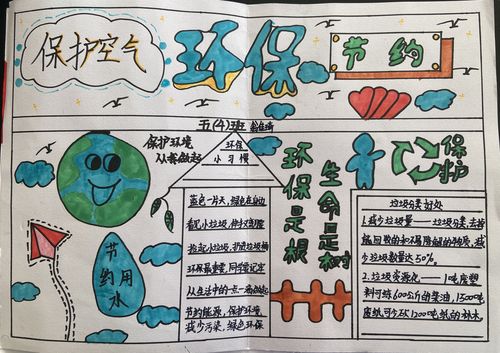 保护空气
环保
节约
五(4)班
保护环境
从我做起
环保
小习惯
蓝色一片天,绿色在身边
看见小垃圾,伸手别随
捡起小垃圾,护进垃圾桶
环保最重要,同学需记定
从生活中的一点一滴做起
节约能源,保护环境,
减少污染,绿色环保
节约用水
环保是根
生命是树
保护
垃圾分类好处
1.减少垃圾量——垃圾分类,去掉
能回数的和不易降解的物质,减
少垃圾数量达50%。
2.垃圾资源化——1吨废塑
料可炼600公斤的柴油,1500吨
废纸可少砍1200吨纸的林木